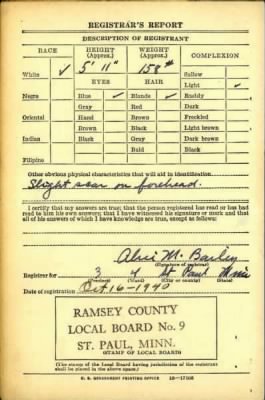 REGISTRAR'S REPORT
DESCRIPTION OF REGISTRANT
RACE HEIGHT (Approx.) WEIGHT (Approx.) COMPLEXION
White ✓ 5' 11" 158# Sallow
EYES HAIR Light ✓
Negro Blue ✓ Blonde ✓ Ruddy
Gray Red Dark
Oriental Hazel Brown Freckled
Brown Black Light brown
Indian Black Gray Dark brown
Bald Black
Filipino
Other obvious physical characteristics that will aid in identification
Slight scar on forehead.
I certify that my answers are true; that the person registered has read or has
had read to him his own answers; that I have witnessed his signature or mark and that
all of his answers of which I have knowledge are true, except as follows:
Alice M. Bailey
(Signature of registrar)
Registrar for 3 4 St Paul Minn
(Precinct) (Ward) (City or county) (State)
Date of registration Oct 16-1940
RAMSEY COUNTY
LOCAL BOARD No. 9
ST. PAUL, MINN.
(STAMP OF LOCAL BOARD)
(The stamp of the Local Board having jurisdiction of the registrant
shall be placed in the above space.)
U. S. GOVERNMENT PRINTING OFFICE